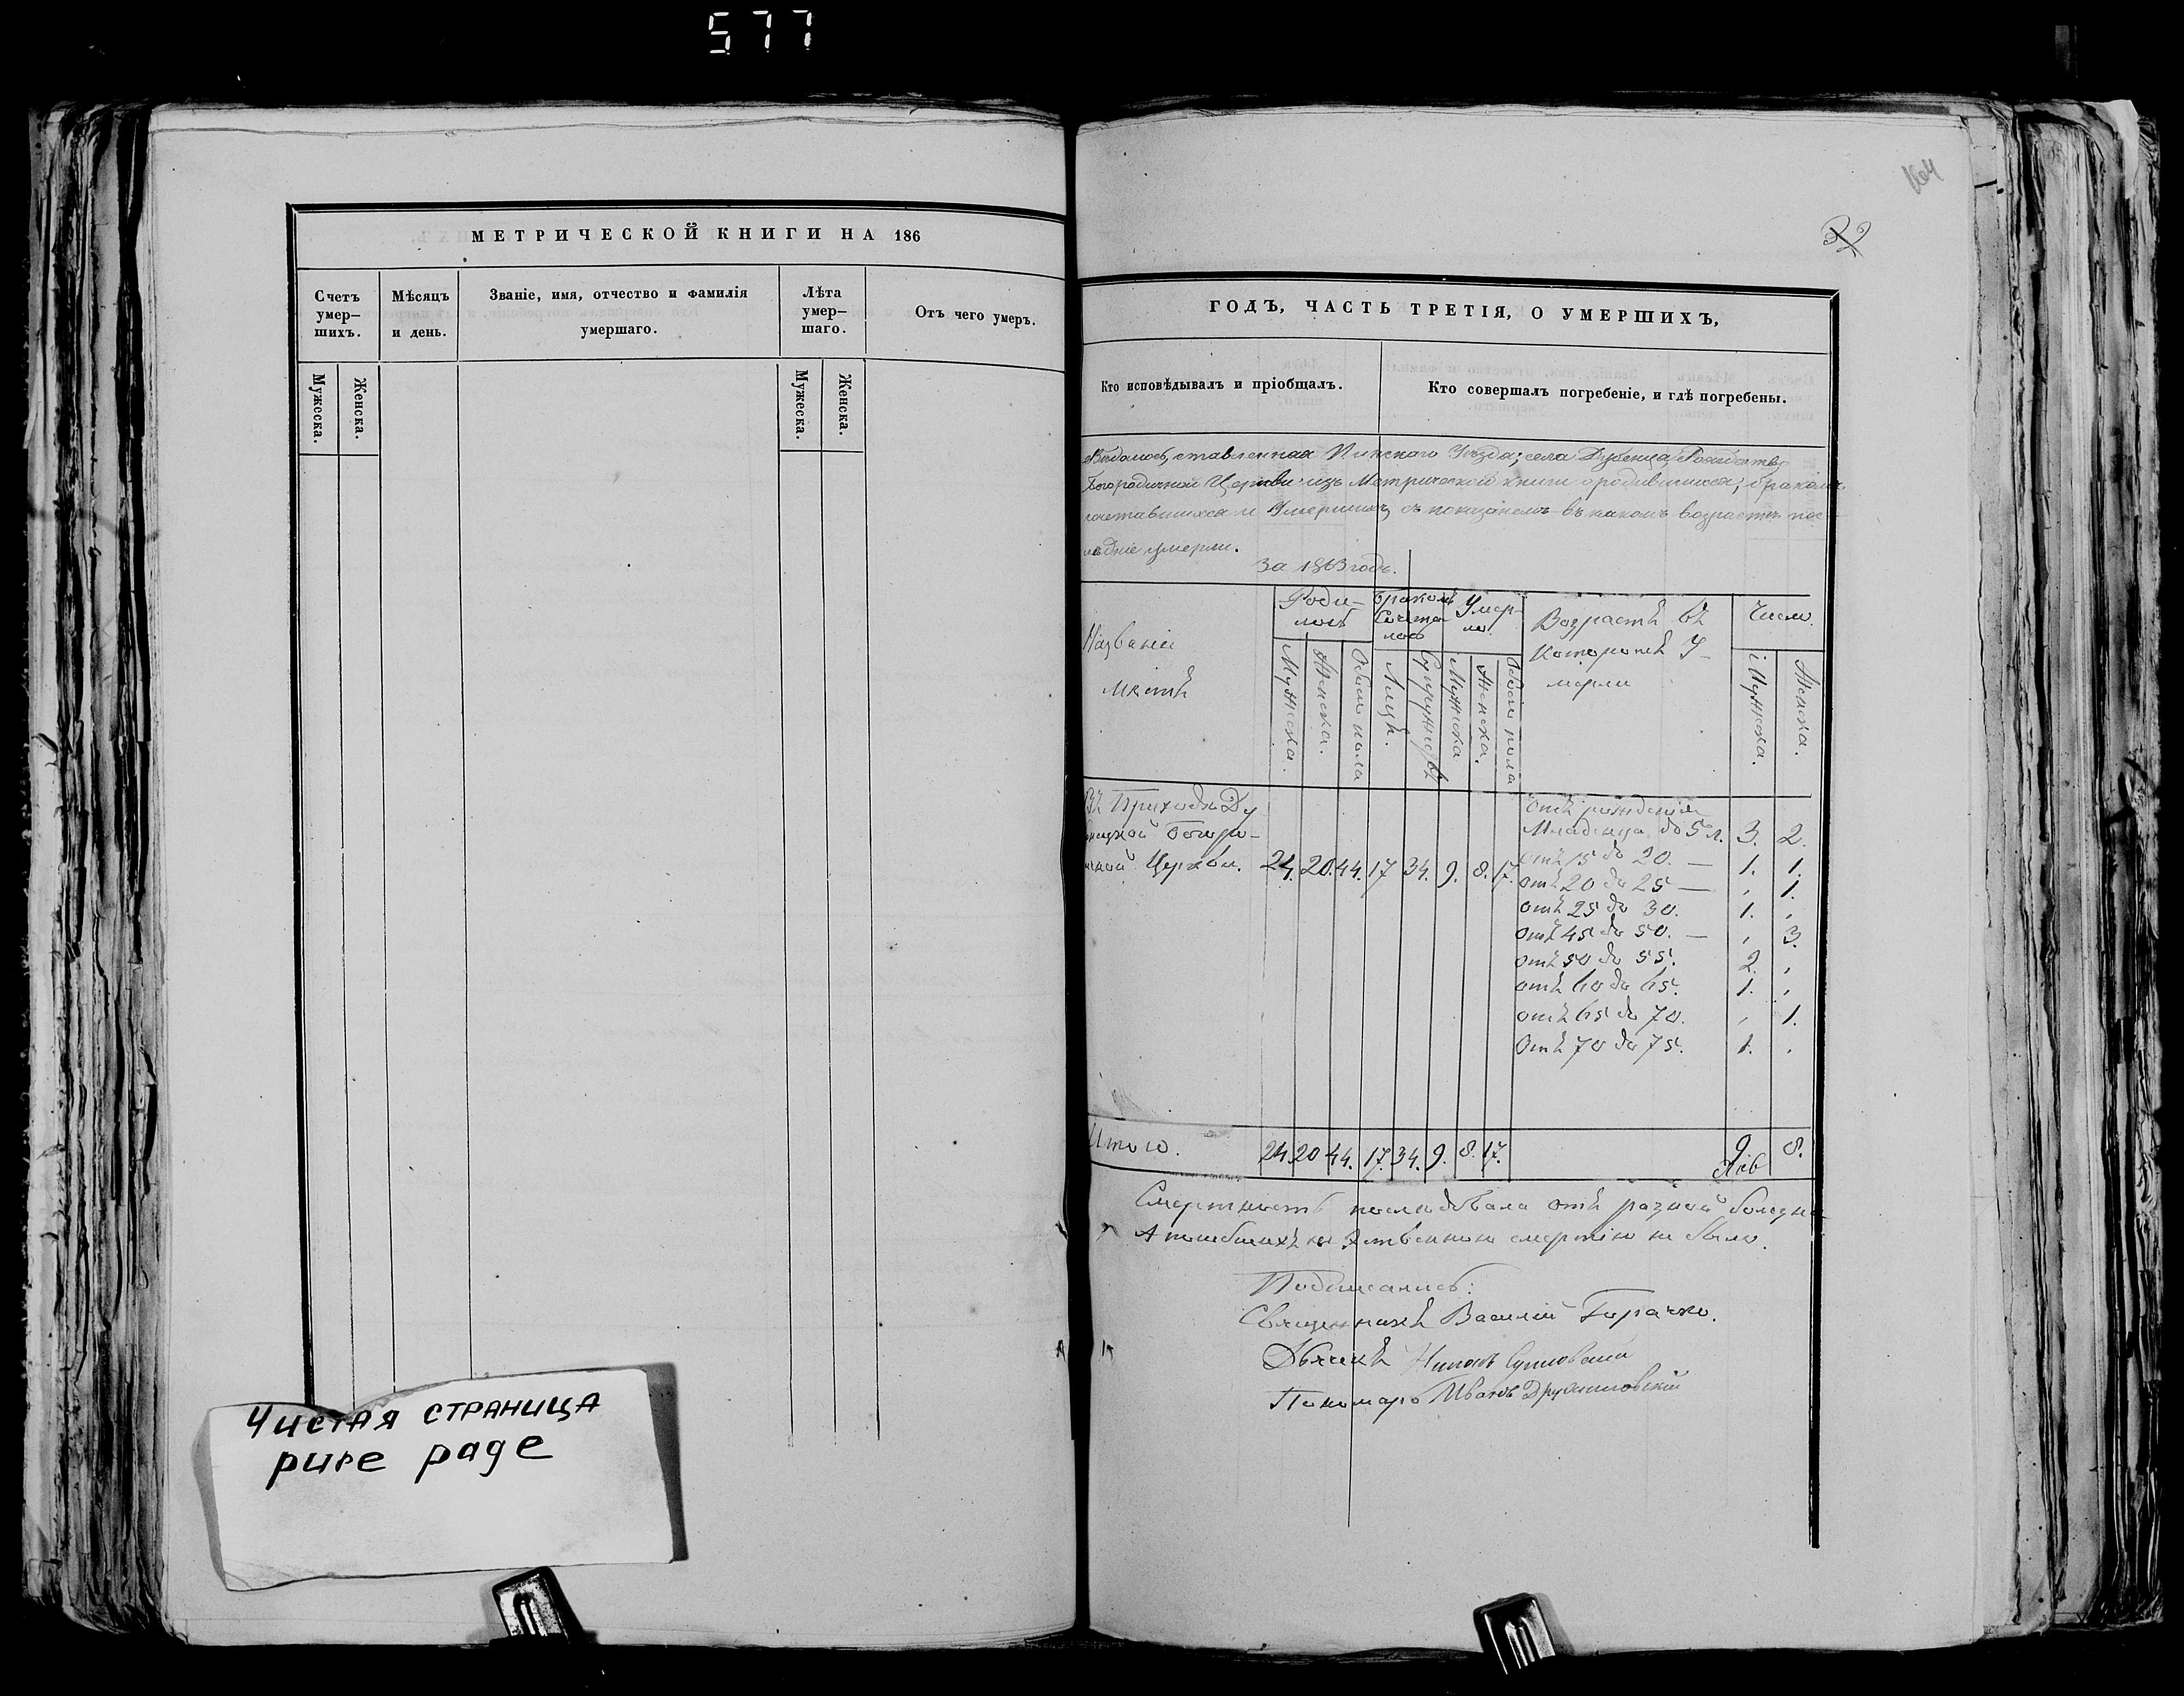 577
МЕТРИЧЕСКОЙ КНИГИ НА 186
Счетъ умер–шихъ.
Мѣсяцъ и день.
Званіе, имя, отчество и фамилія умершаго.
Лѣта умер–шаго.
Отъ чего умеръ.
Мужеска.
Женска.
Мужеска.
Женска.
Чистая страница
pure page
164
32
ГОДЪ, ЧАСТЬ ТРЕТІЯ, О УМЕРШИХЪ,
Кто исповѣдывалъ и пріобщалъ.
Кто совершалъ погребеніе, и гдѣ погребены.
Вѣдомость, ставленная Пинскаго Уѣзда; села Дубенца, Рождество
Богородичной Церкви изъ Метрической книги о родившихся, бракомъ
сочетавшихся и Умершихъ, съ показаніемъ въ какомъ возрастѣ пос–
лѣдніе умерли.
За 1863 годъ.
Названіе мѣстъ
Роди–лось
Бракомъ Сочета лось
Умер–ло.
Возрастъ въ которомъ У–мерли
Число.
Мужеска.
Женска.
Обоего пола
Лицъ.
Супружествъ
Мужеска
Женска.
Обоего пола
Мужеска.
Женска.
Въ Приходѣ Ду
Богоро–
Церкви. 24. 20. 44. 17 34. 9. 8. 17.
отъ рожденія
Младенца до 5 л. 3. 2.
отъ 15 до 20. — 1. 1.
отъ 20 до 25 — , 1.
отъ 25 до 30. 1. ,
отъ 45 до 50. — , 3.
отъ 50 до 55. 2. ,
отъ 60 до 65. 1. ,
отъ 65 до 70. , 1.
отъ 70 до 75. 1. ,
Итого. 24. 20 44. 17. 34. 9. 8. 17. 9. 8.
Смертность послѣдовала отъ разной болезни
А погибшихъ смертію не было.
Подписались:
Священникъ Василій Горачко.
Дьячекъ
Пономарь Иванъ Дружиловскій